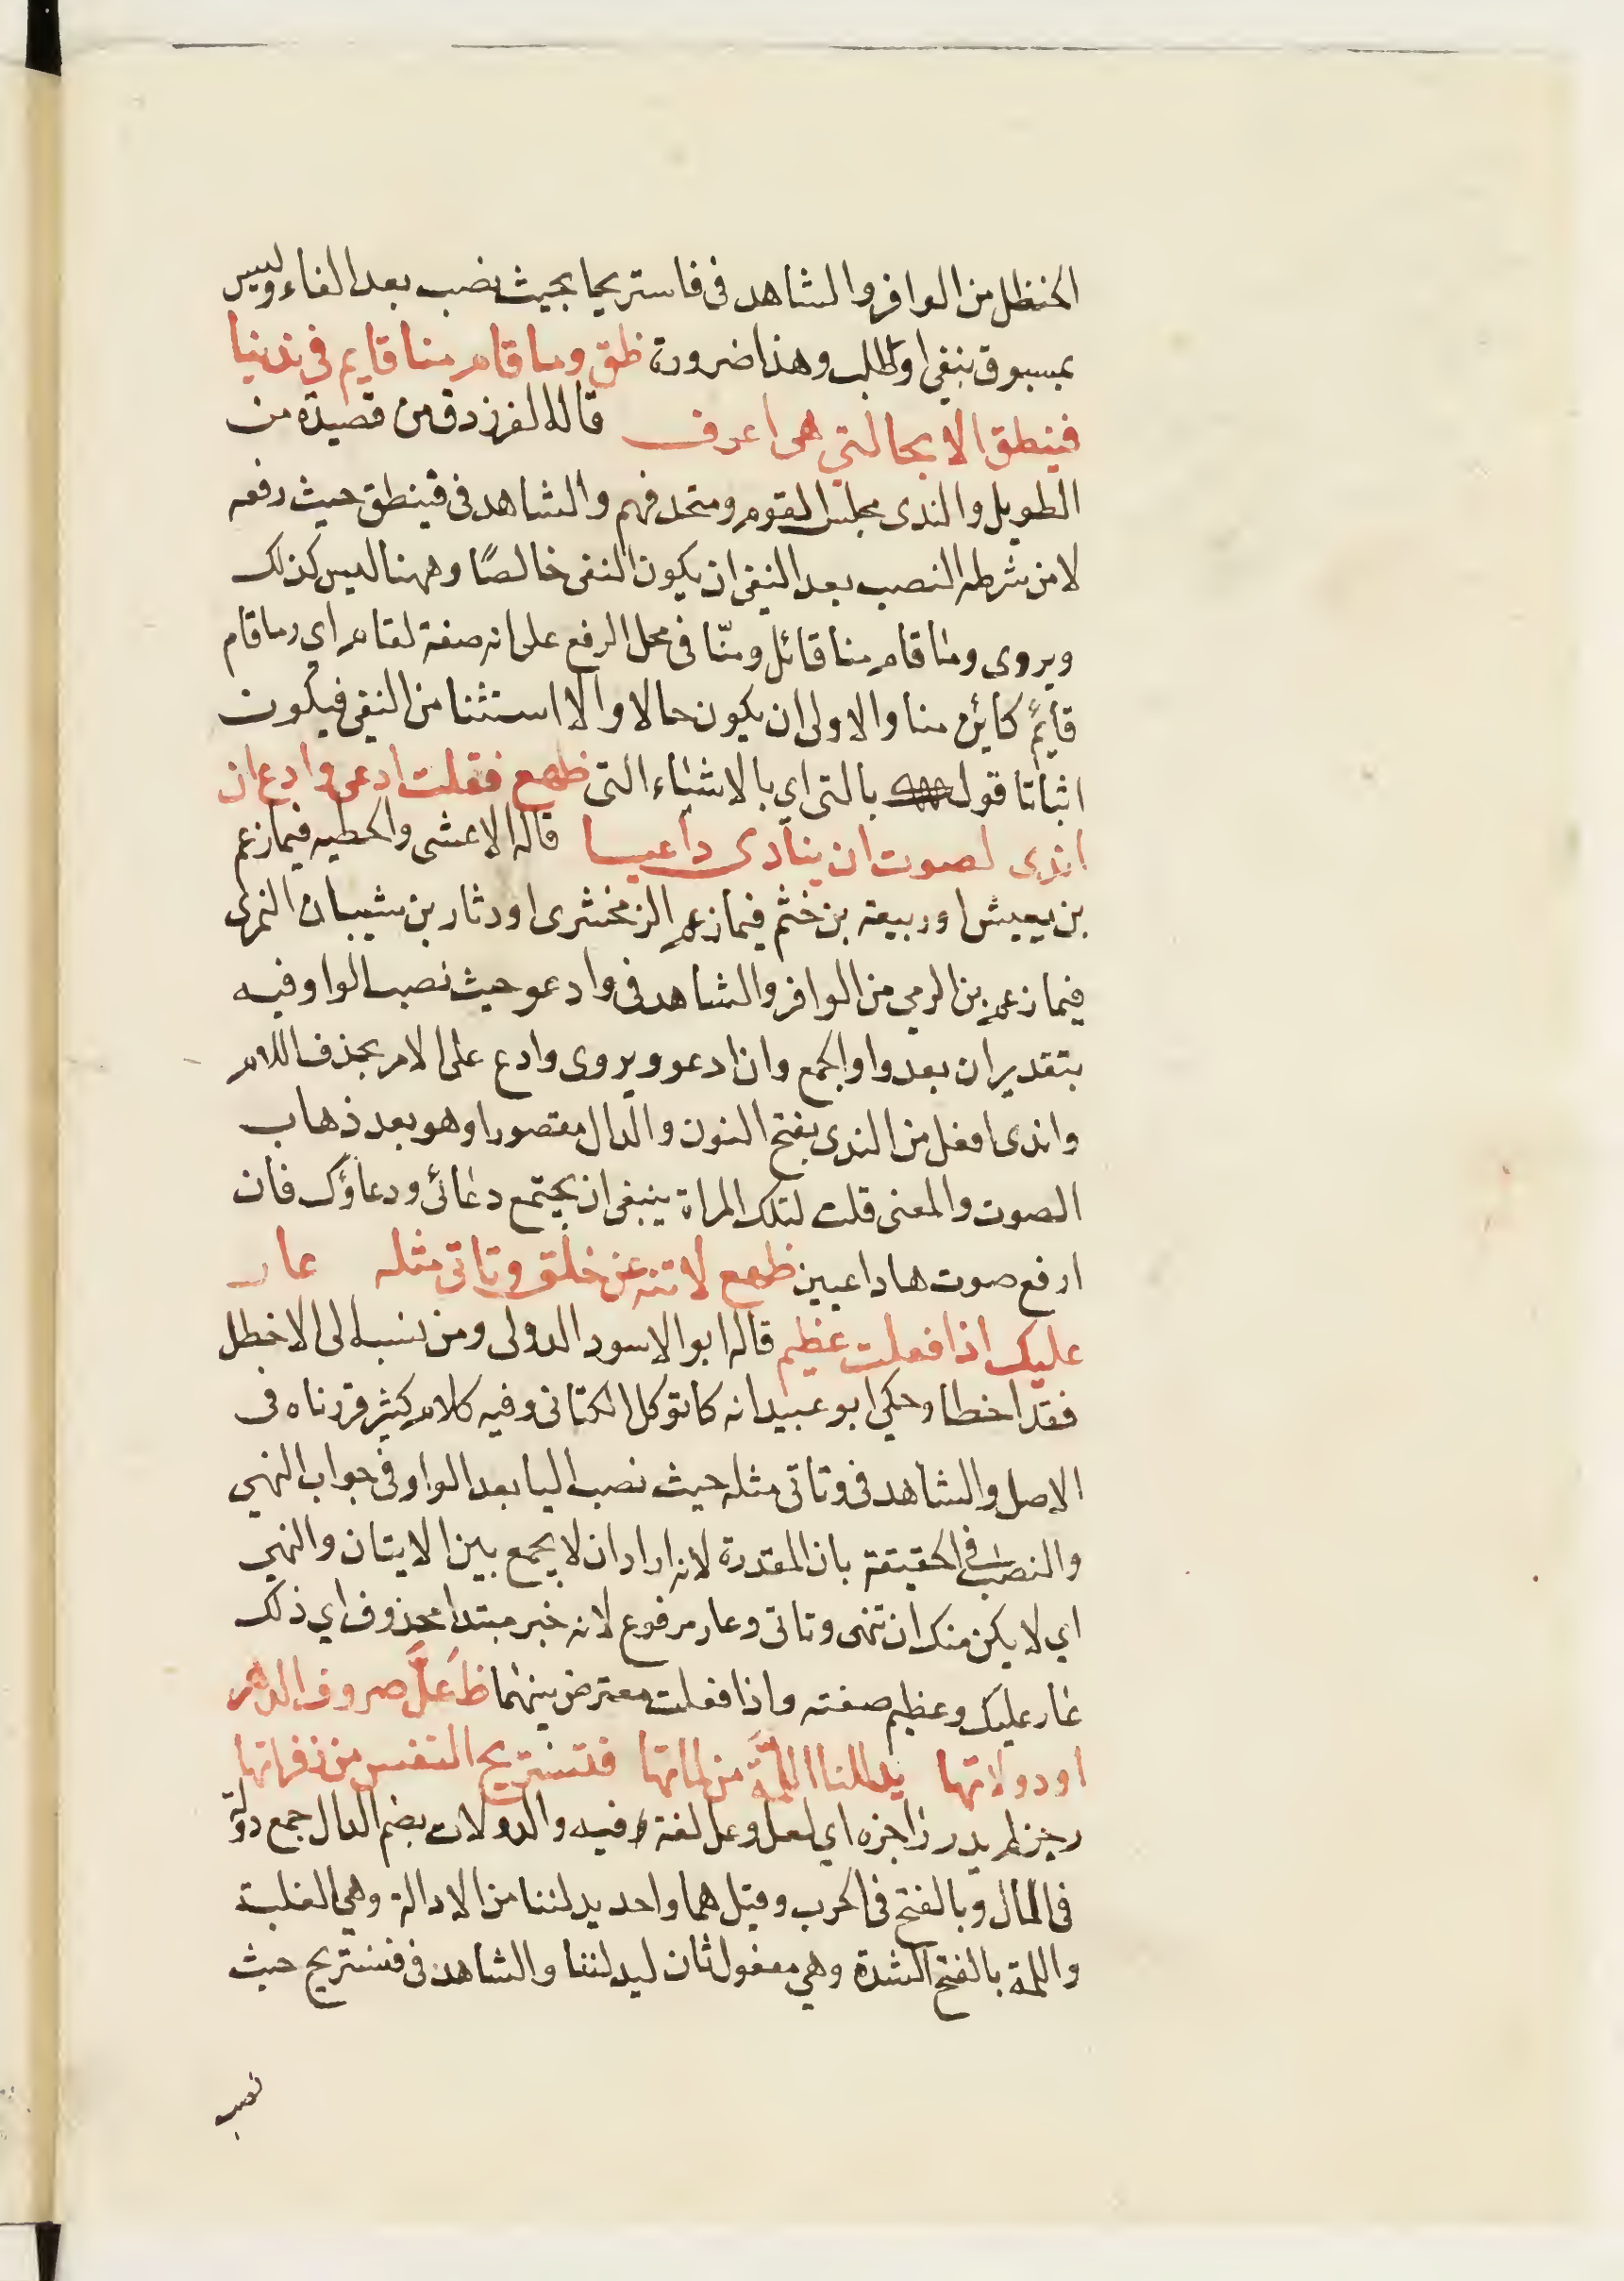 الحنظل من الوافر والشاهد في فاستريحا بحيث نصب بعد الفاء وليس
بمسبوق بنفي او طلب وهذا ضرورة ظق وما قام منا قايم في ندنيا
فينطق الا بحا لتي هي اعرف قاله الفرزدق من قصيدة من
الطويل والندى مجلس القوم ومتحدثهم والشاهد في فينطق حيث رفعه
لا من شرطه النصب بعد النفي ان يكون النفي خالصًا وههنا ليس كذلك
ويروى وما قام منا قائل ومنّا في محل الرفع على انه صفة لقام اي وما قام
قايمٌ كاين منا والاولى ان يكون حالا والا استثنا من النفي فيكون
اثباتا قول بالتي اي بالاشياء التي ظهع فقلت ادعى وادع ان
اندى لصوت ان ينادى داعيا قاله الاعشى والحطيه فيما زعم
بن يعيش او ربيعة بن خثم فيما زعم الزمخشرى او دثار بن شيبان النمرى
فيما زعم بن الرمي من الوافر والشاهد في وادعو حيث نصب الواو فيه
بتقدير ان بعد واو الجمع وان ادعو ويروى وادع على الامر بحذف اللام
واندى افعل من الندى بفتح النون والدال مقصورا وهو بعد ذهاب
الصوت والمعنى قلت لتلك المراة ينبغي ان يجتمع دعائى ودعاؤك فان
ارفع صوت ها داعيين ظهع لا تنه عن خلق وتاتي مثله عار
عليك اذا فعلت عظيم قاله ابو الاسود الدولى ومن نسبه الى الاخطل
فقد اخطا وحكي ابو عبيد انه كاتوكل الكتانى وفيه كلام كثير قرزناه في
الاصل والشاهد في وتاتي مثله حيث نصب اليا بعد الواو في جواب النهي
والنصب في الحقيقة بان المقدرة لانه اراد ان لا يجمع بين الايتان والنهي
اي لا يكن منك ان تنهى وتاتي وعار مرفوع لانه خبر مبتدا محذوف اي ذلك
عار عليك وعظيم صفته واذا فعلت معترض بينهما ظ عَلَّ صروف الدهر
او دولاتها يدللنا اللمَّة من لماتها فتستريح النفس من زفراتها
رجز لم يدر راجزه اي لعل وعل لغة فيه والدولات بضم الدال جمع دولة
في المال وبالفتح في الحرب وقيل هما واحد يدلننا من الادالة وهي الغلبة
واللمة بالفتح الشدة وهي مفعول ثان ليدلننا والشاهد في فتستريح حيث
نصب